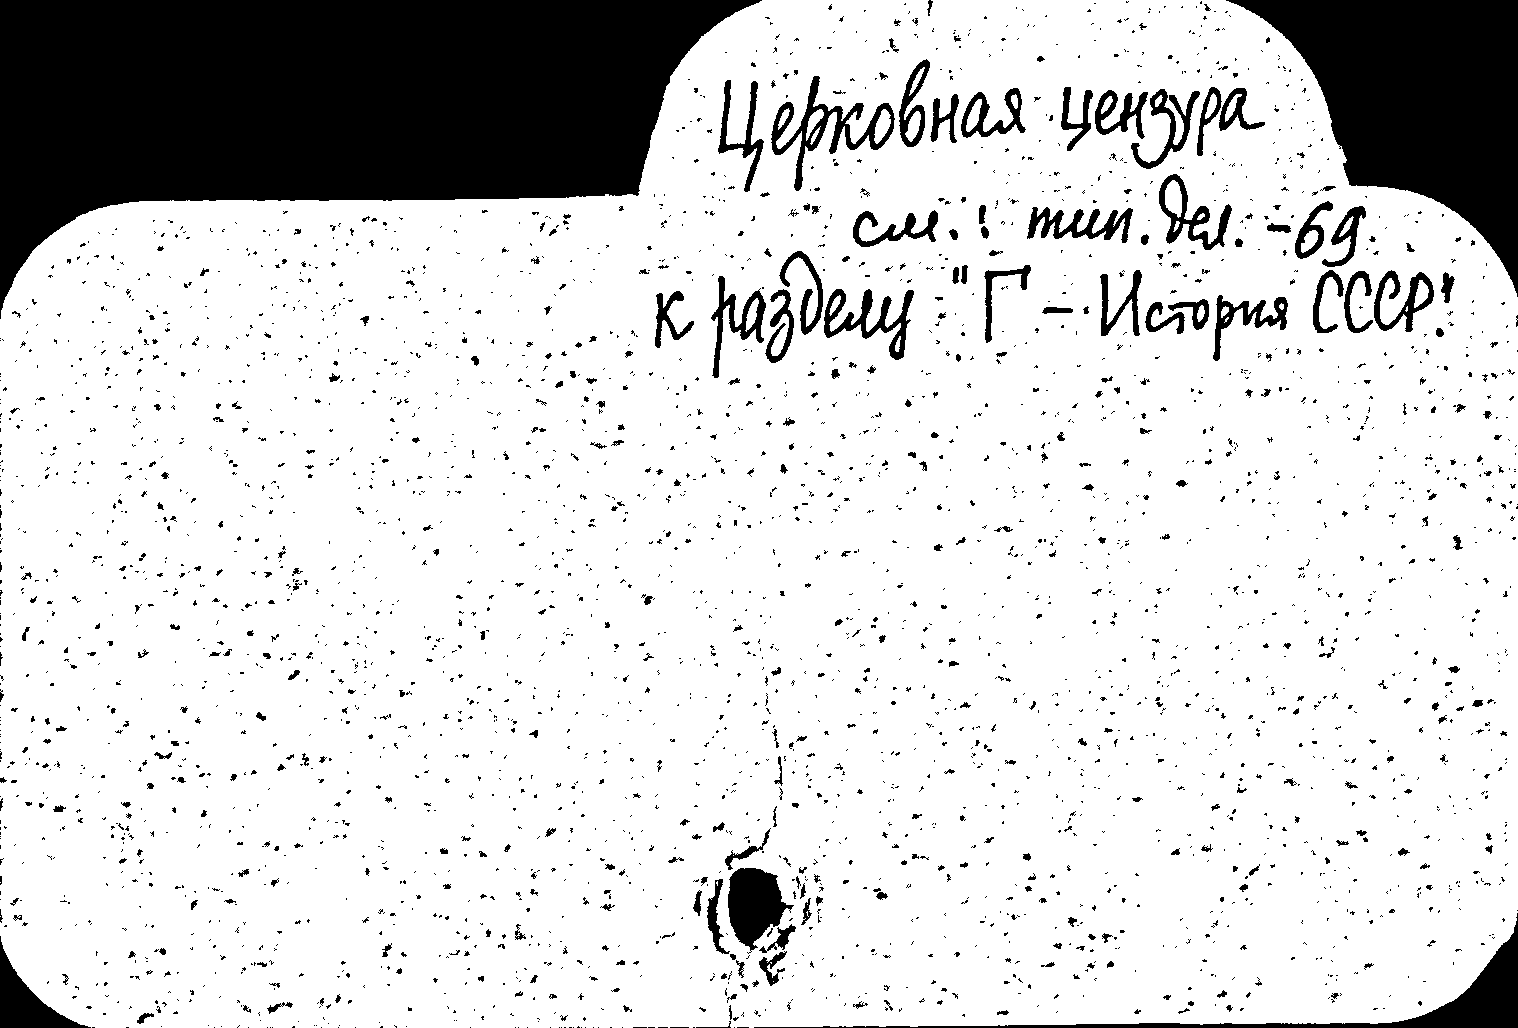 Церковная цензура
см.: тип. дел. -69
к разделу "Г - История СССР"